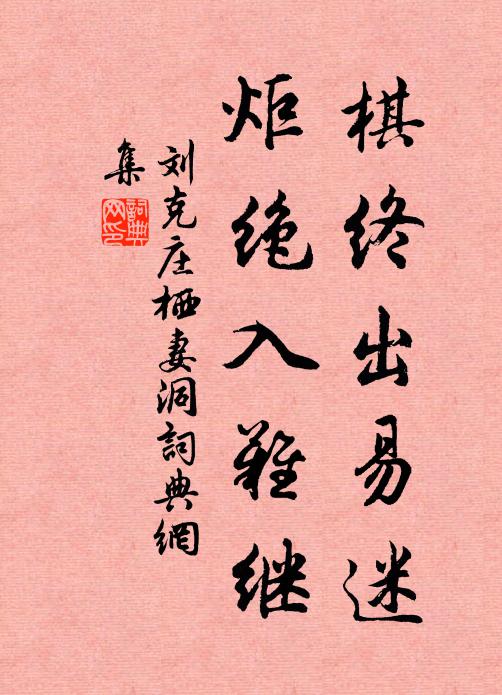 棋终出易迷
炬绝入难继
刘克庄栖妻洞詞典網
集
詞典网印